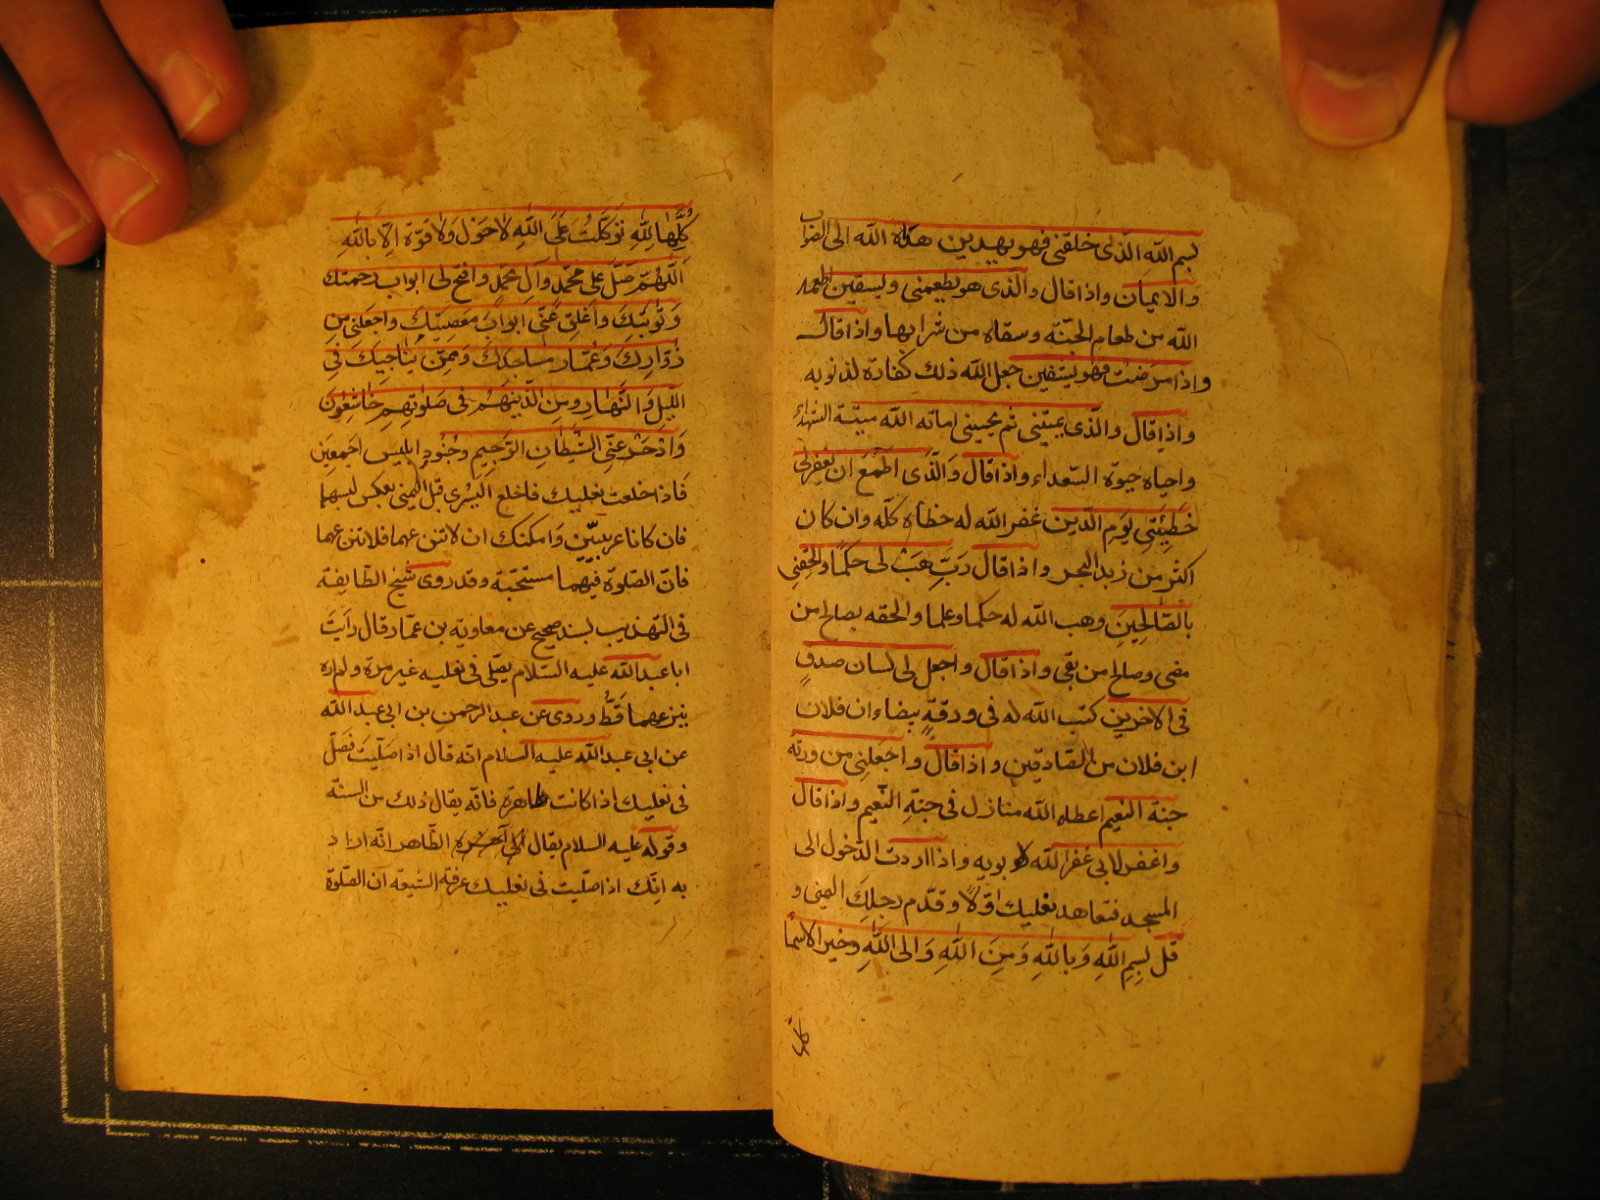 بسم الله الذى خلقنى فهو يهدين هداه الله الى الصواب
والايمان واذا قال والذى هو يطعمنى ويسقين اطعمه
الله من طعام الجنة وسقاه من شرابها واذا قال
واذا مرضت فهو يشفين جعل الله ذلك كفارة لذنوبه
واذا قال والذى يميتنى ثم يحيينى اماته الله ميتة الشهداء
واحياه حيوة السعداء واذا قال وَالّذى اطمَعُ ان يغفر لى
خَطِيئَتِى يَومِ الدّين غفر الله له خطاه كلّه وان كان
اكثر من زبد البحر واذا قال رَبِّ هَبْ لى حكمًا والحِقنى
بالصّالحِينَ وهب الله له حكما وعلما والحقه بصالح من
مضى وصالح من بقى واذا قال واجعل لى لسان صدقٍ
فى الاخرين كتب الله له فى ورقةٍ بيضاء ان فلان
ابن فلان من الصّادقين واذا قال واجعلنى من ورثه
جنة النعيم اعطاه الله منازل فى جنةِ النّعيم واذا قال
واغفر لابى غفر الله لابويه واذا اردت الدّخول الى
المسجد فتعاهد نعليك اوّلاً وقدّم رجلك اليمنى و
قل بِسمِ اللهِ وَبِاللهِ وَمِنَ اللهِ وَالى اللهِ وخير الاسمآ
كلّها
كُلِّها لِلّهِ تَوَكّلتُ عَلَى اللهِ لاحَولَ وَلاقوّةَ اِلّا بِاللهِ
اَللّهُمّ صَلِّ على محمّدٍ وآلِ محمّدٍ وافتح لى ابواب رحمتك
وَتَوبَتِكَ وَاغلِق عَنّى ابوابَ مَعصِيَتِكَ واجعلنى مِن
زُوّارِكَ وَعُمّارِ مساجدك وَمِمّن يُناجيكَ فِى
الليلِ وَالنّهارِ ومِنَ الّذينهُم فى صَلوتِهِم خاشِعُونَ
وَادْحَرْ عَنّى الشّيطانِ الرَّجيمِ وجُنُودِ ابليس اجمعينَ
فاذا خلعت نعليك فاخلع اليُسرى قبل اليمنى بعكس لبسهما
فان كانا عربيّين وامكنك ان لا تنزعهما فلا تنزعهما
فانّ الصّلوة فيهما مستحبّة وقد روى شيخ الطّايفة
فى التهذيب بسند صحيح عن معاوية بن عمّار قال رأيت
اباعبد الله عليه السّلام يصلّى فى نعليه غير مرّة ولم اره
ينزعهما قطُّ وروى عن عبد الرحمن بن ابى عبد الله
عن ابى عبد الله عليه السلام انّه قال اذا صلّيتَ فَصَلّ
فى نعليك اذا كانت طاهرة فانّه يقال ذلك من السنّة
وقوله عليه السلام يقال الى آخره الظّاهر انّه اراد
به اِنّك اذا صلّيت فى نعليك عرفته الشيعة آن الصّلوة